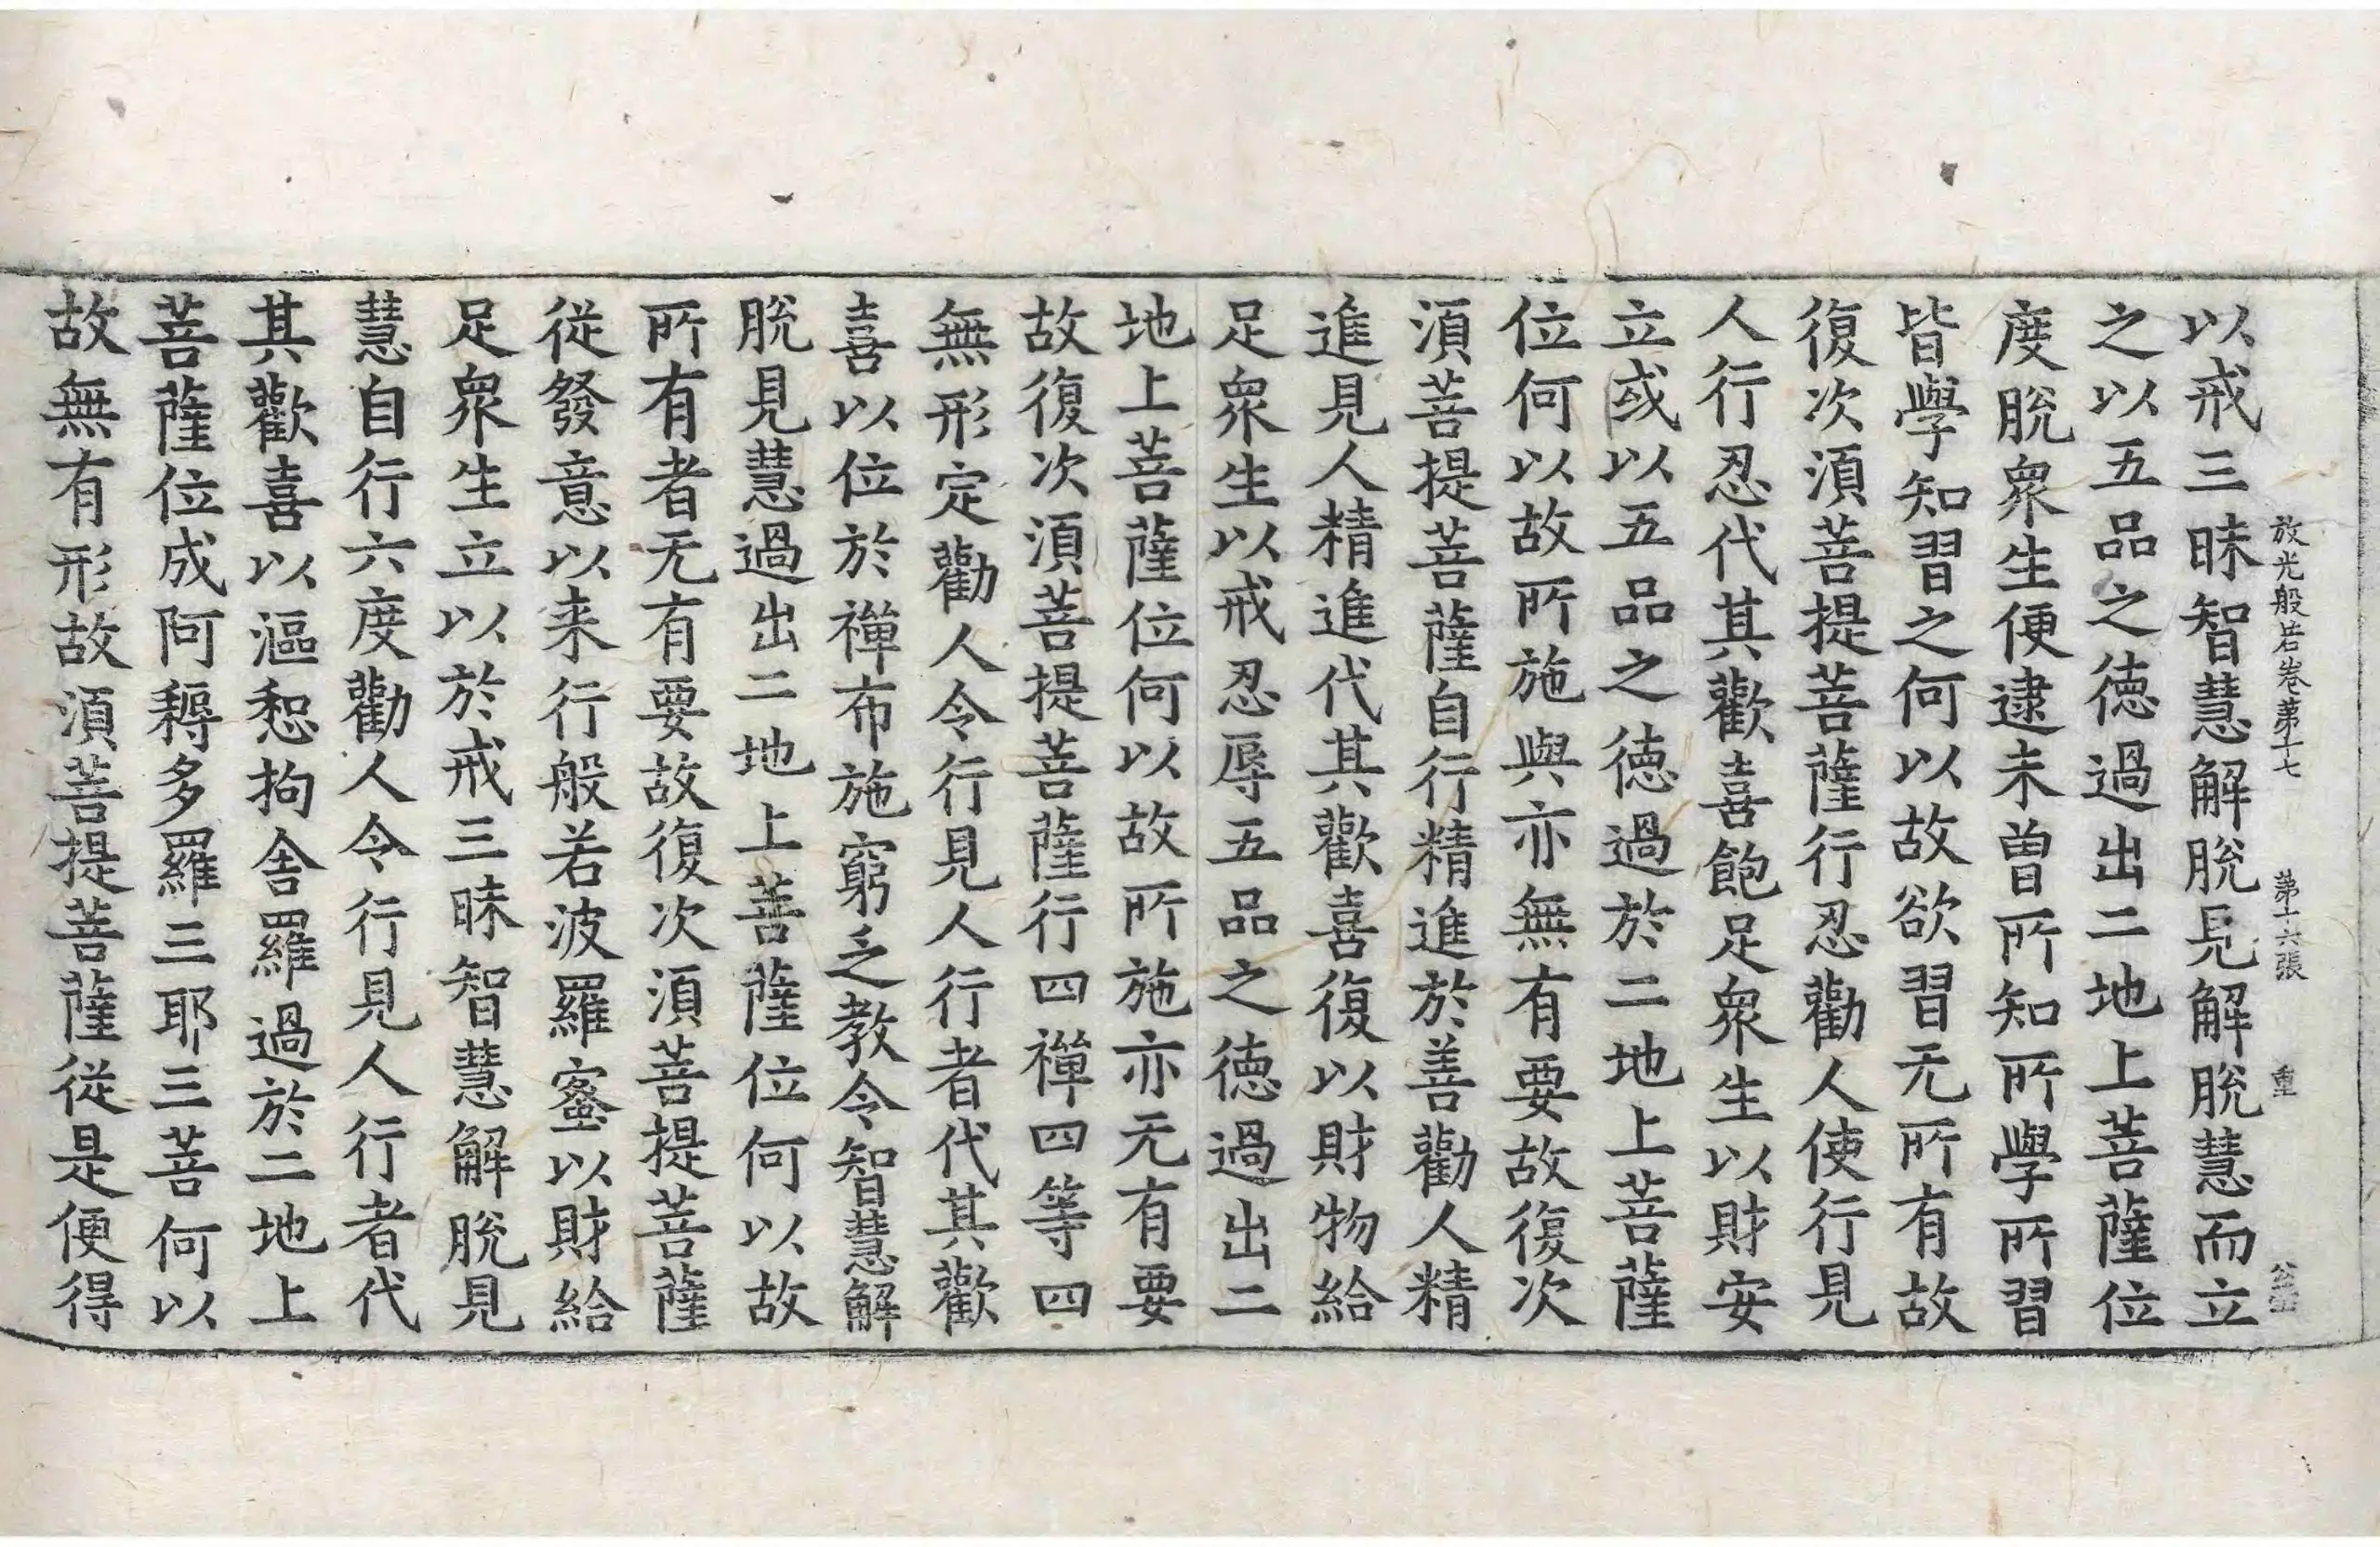 放光般若卷第十七 第十六張 重
以戒三昧智慧解脫見解脫慧而立
之以五品之德過出二地上菩薩位
度脫衆生便逮未曾所知所學所習
皆學知習之何以故欲習无所有故
復次須菩提菩薩行忍勸人使行見
人行忍代其歡喜飽足衆生以財安
立或以五品之德過於二地上菩薩
位何以故所施與亦無有要故復次
須菩提菩薩自行精進於善勸人精
進見人精進代其歡喜復以財物給
足衆生以戒忍辱五品之德過出二
地上菩薩位何以故所施亦无有要
故復次須菩提菩薩行四禪四等四
無形定勸人令行見人行者代其歡
喜以位於禪布施窮乏教令智慧解
脫見慧過出二地上菩薩位何以故
所有者无有要故復次須菩提菩薩
從發意以来行般若波羅蜜以財給
足衆生立以於戒三昧智慧解脫見
慧自行六度勸人令行見人行者代
其歡喜以漚惒拘舍羅過於二地上
菩薩位成阿耨多羅三耶三菩何以
故無有形故須菩提菩薩從是便得